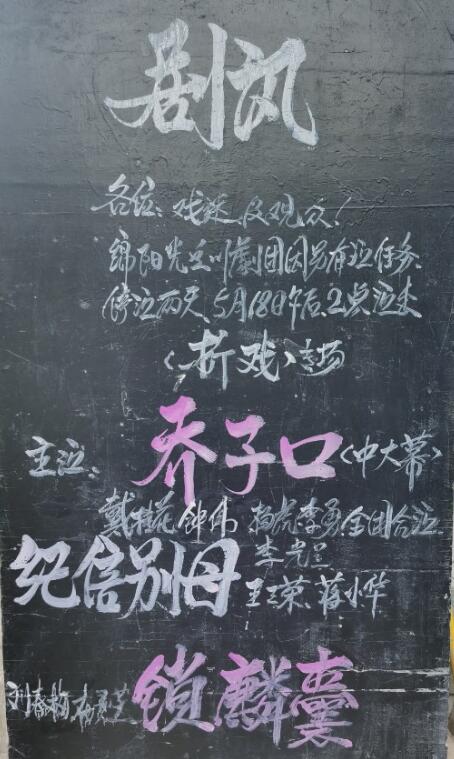 剧讯
各位、戏迷及观众！
绵阳光正川剧团因另有演任务、
停演两天、5月18日午后、2点演出
〈折戏〉专场
主演：乔子口〈中大幕〉
戴桂花 钟伟 杨虎、李勇、全团合演
李光兰
纪信别母 王玉荣、蒋小华
刘春梅 锁麟囊